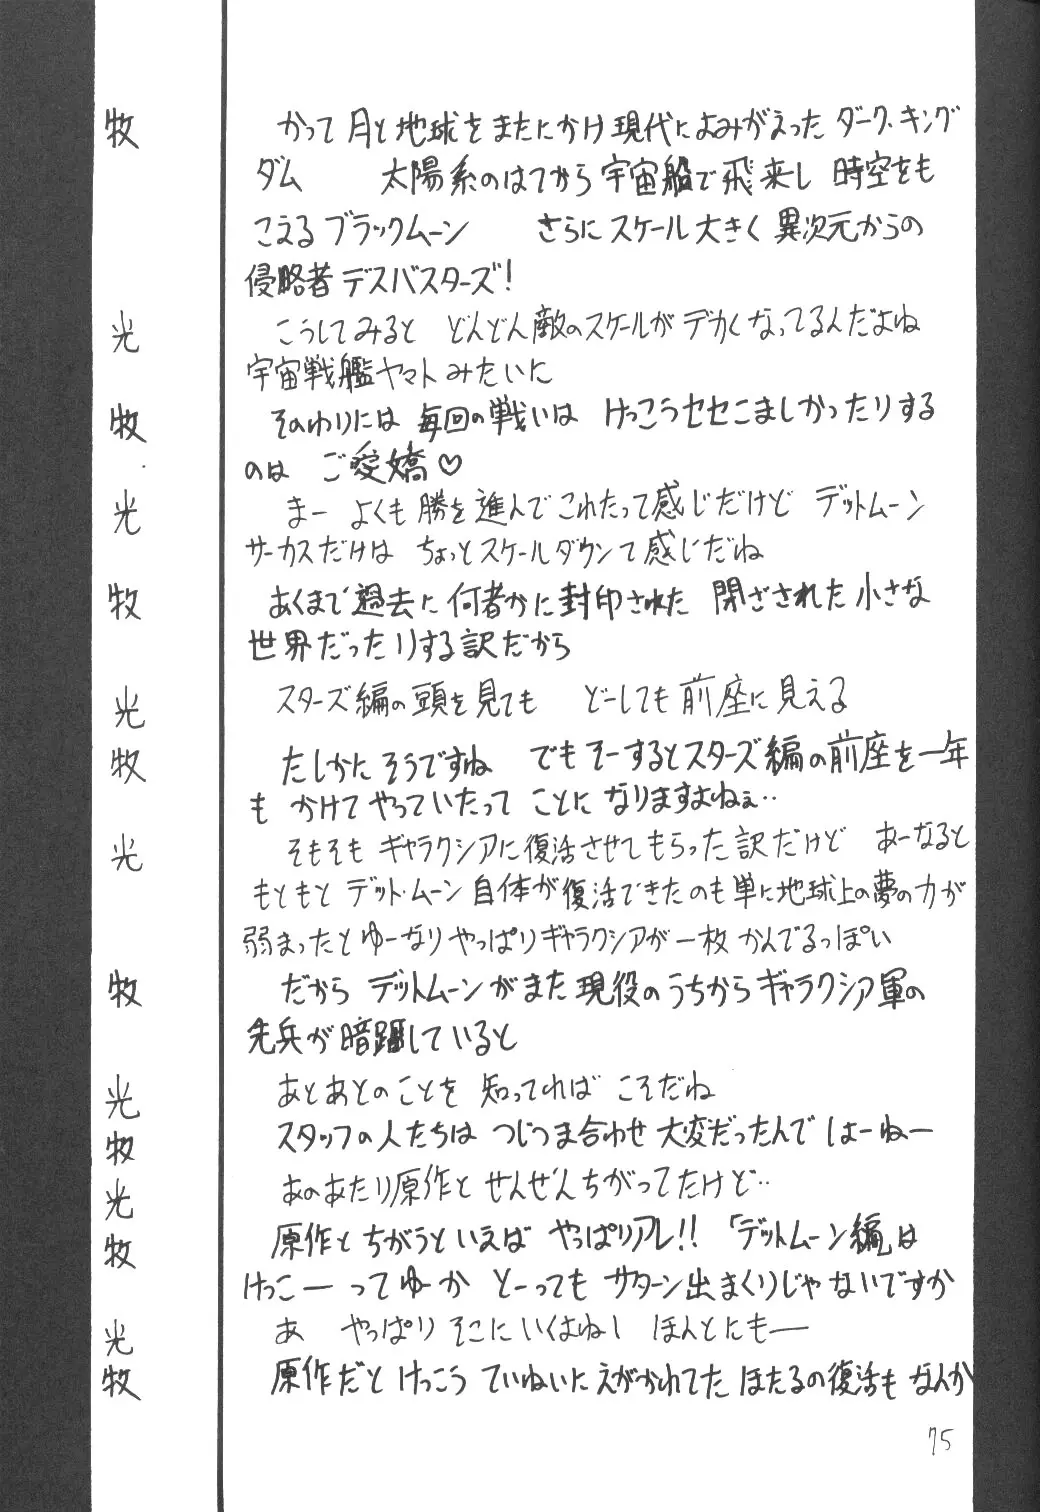 牧 かって月と地球をまたにかけ現代によみがえったダーク・キング
ダム 太陽系のはてから宇宙船で飛来し 時空をも
こえるブラックムーン さらにスケール大きく異次元からの
侵略者デスバスターズ!
光 こうしてみると どんどん敵のスケールがデカくなってるんだよね
宇宙戦艦ヤマトみたいに
牧 そのわりには毎回の戦いは けっこうセセこましかったりする
のは ご愛嬌♡
光 まー よくも勝を進んでこれたって感じだけど デットムーン
サーカスだけは ちょっとスケールダウンて感じだね
牧 あくまで過去に何者かに封印された 閉ざされた小さな
世界だったりする訳だから
光 スターズ編の頭を見ても どーしても前座に見える
牧 たしかにそうですね でもそーするとスターズ編の前座を一年
も かけてやっていたって ことに なりますよねぇ‥
光 そもそも ギャラクシアに復活させてもらった訳だけど あーなると
もともと デット・ムーン自体が復活できたのも単に地球上の夢の力が
弱まったとゆーなり やっぱりギャラクシアが一枚かんでるっぽい
牧 だから デットムーンがまた現役のうちからギャラクシア軍の
先兵が暗躍していると
光 あとあとのことを 知ってれば こそだね
牧 スタッフの人たちは つじつま合わせ大変だったんでしょーねー
光 あのあたり原作と ぜんぜんちがってたけど‥
牧 原作とちがうといえば やっぱりアレ!!「デットムーン編」は
けっこーってゆーか とーってもサターン出まくりじゃないですか
光 あ やっぱり そこにいくよねー ほんとにもー
牧 原作だと けっこう ていねいにえがかれてた ほたるの復活も なんか
75